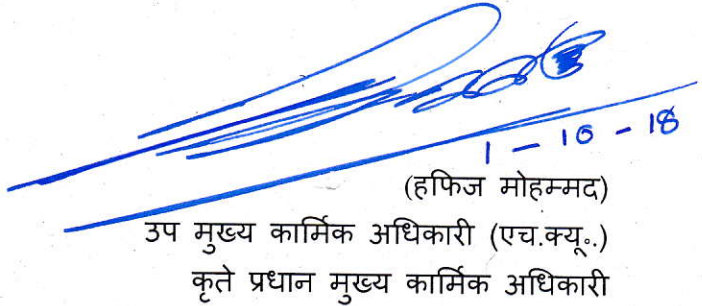 1 - 10 - 18
(हफिज मोहम्मद)
उप मुख्य कार्मिक अधिकारी (एच.क्यू॰.)
कृते प्रधान मुख्य कार्मिक अधिकारी